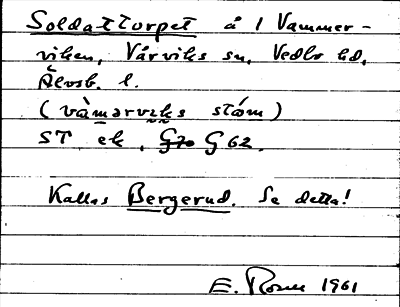 Soldattorpet å 1 Vammer-
viken, Vårviks sn, Vedbo hd,
Älvsb. l.
(vàmərviks stám)
ST ek. G70 G 62.
Kallas Bergerud. Se detta!
E. Rosen 1961